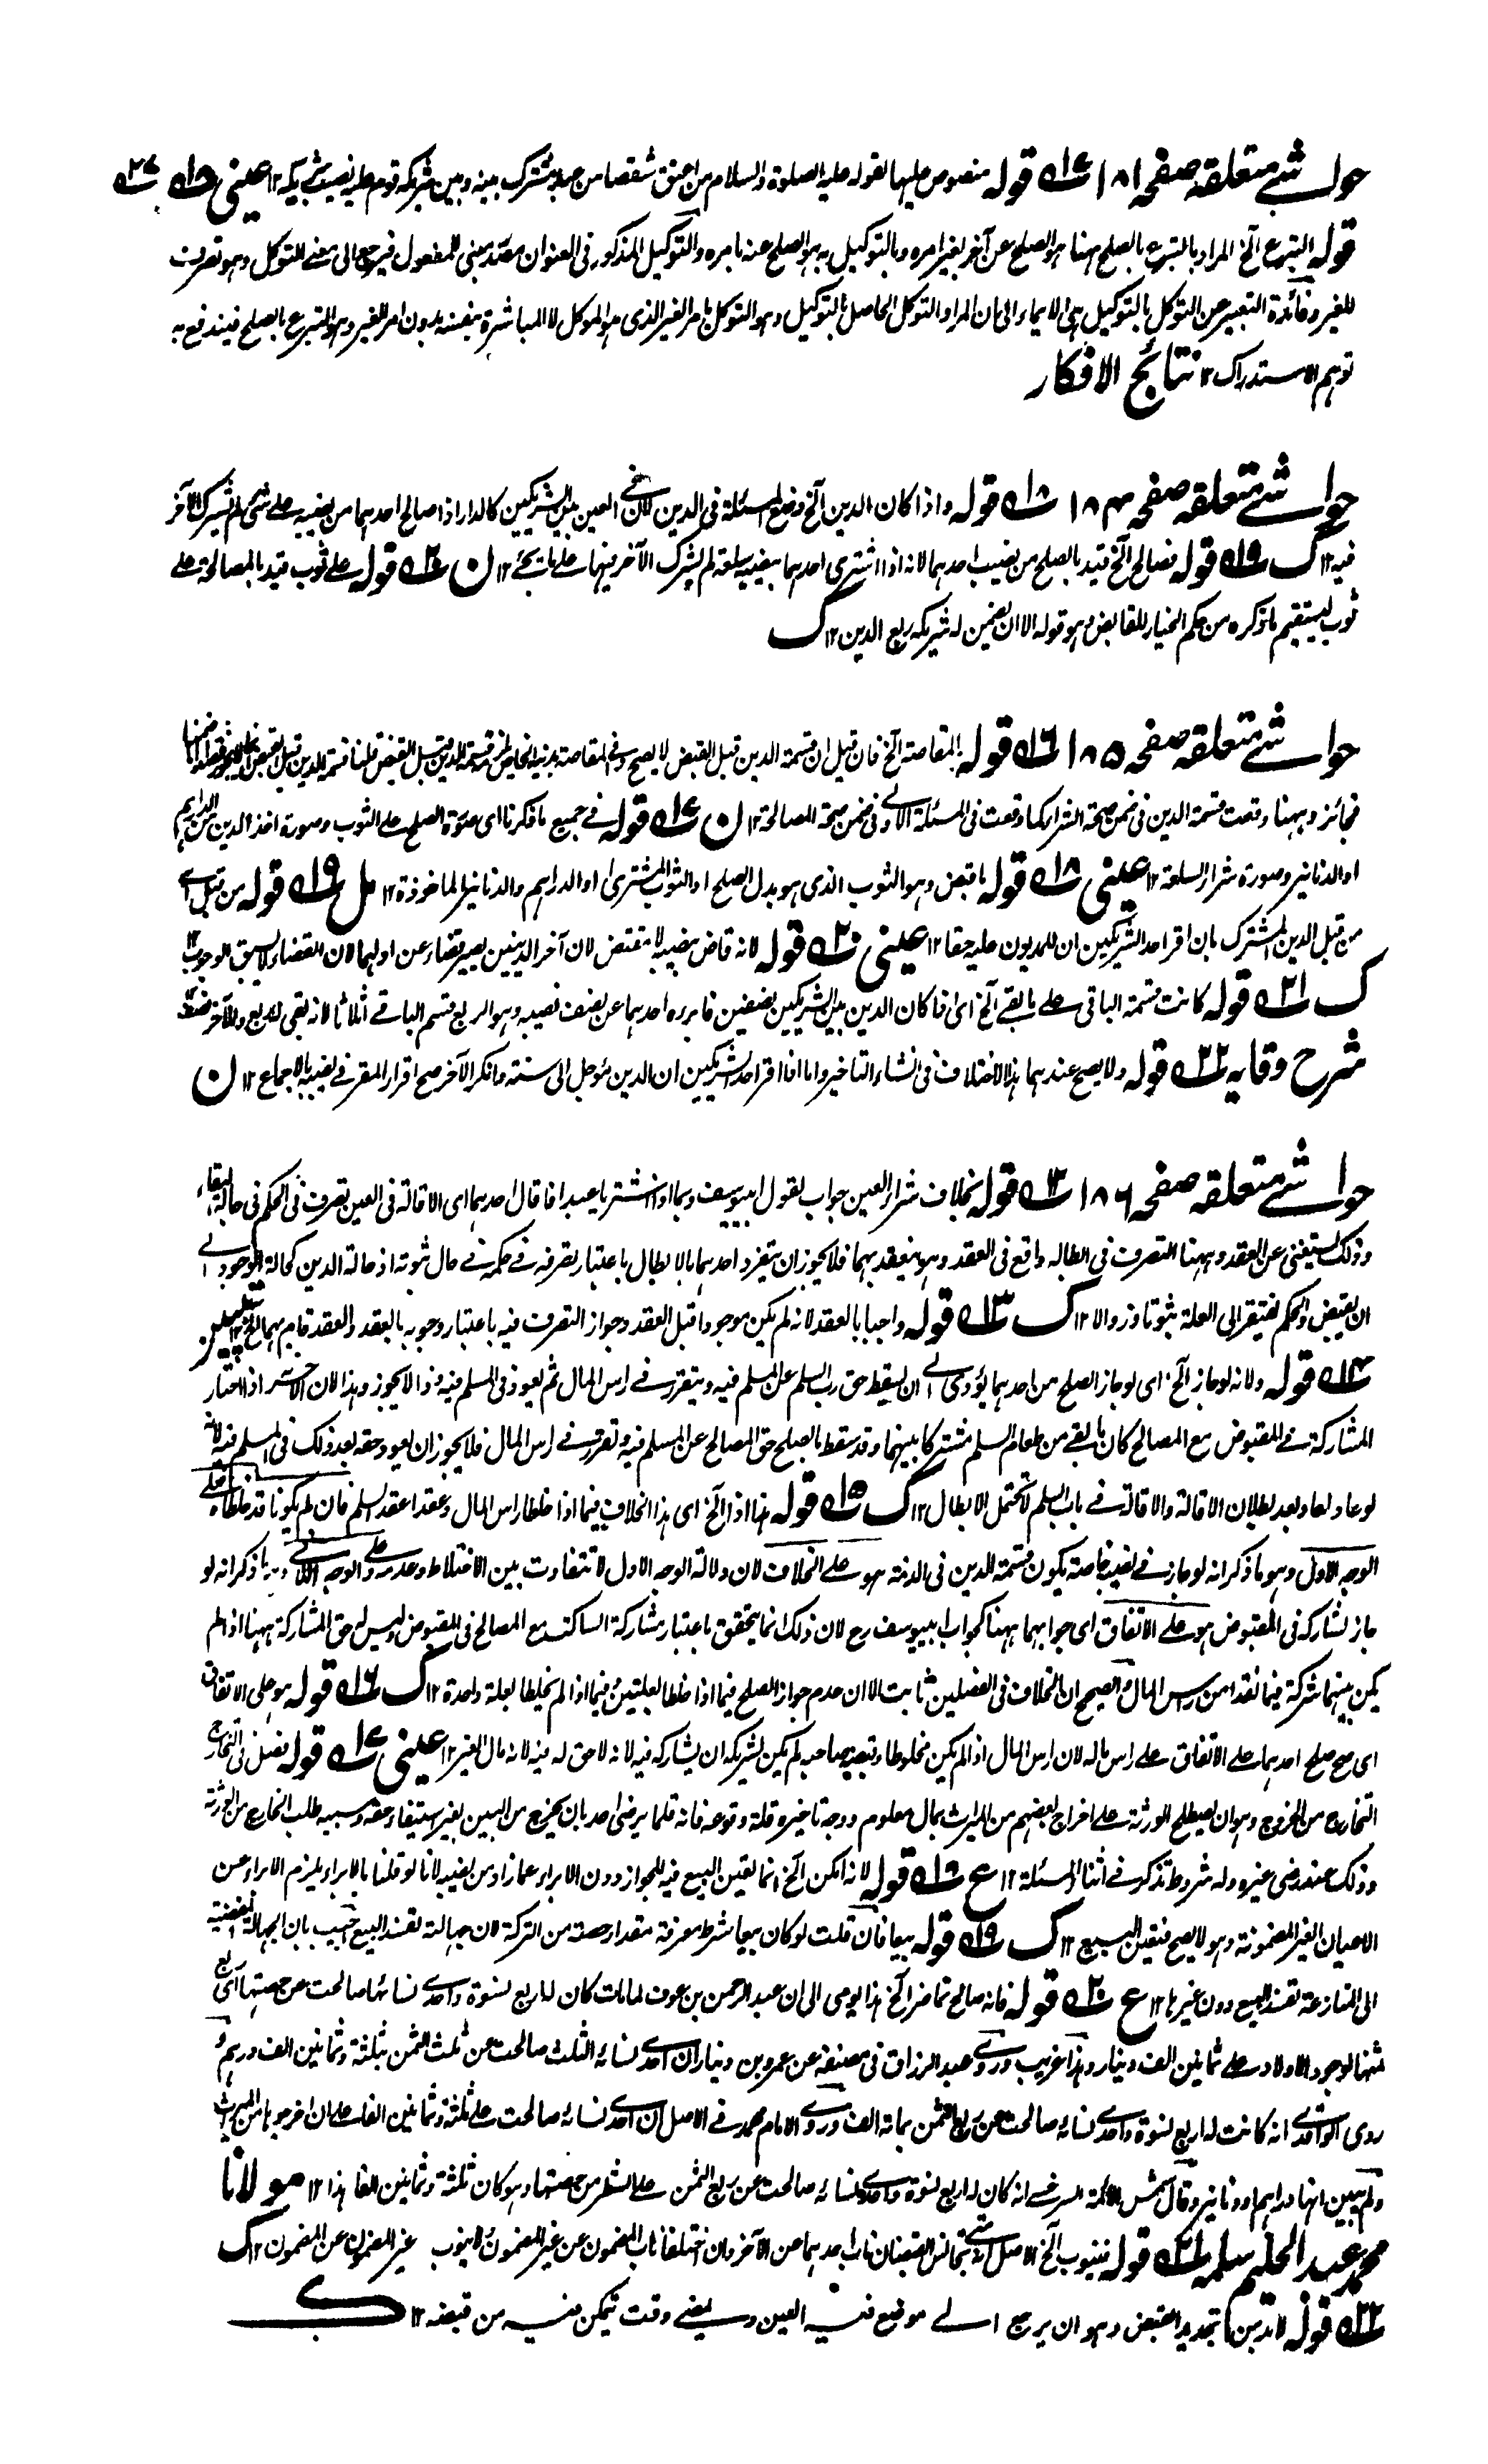 حواشے متعلقہ صفحہ ۱۸۱ ۱۷ قوله منصوص علیہا لقوله علیہ الصلوة والسلام من اعتق شقصا من عبد مشترک بینہ وبین شریکہ قوم علیہ نصیب شریکہ ۱۲ عینی ۱۸ ۲۷
قوله التبرع الخ المراد بالتبرع بالصلح ہہنا ہو الصلح عن آخر بغیر امره وبالتوکیل بہ ہو الصلح عنہ بامره والتوکیل المذکور فی العنوان مصدر مبنی للمفعول فیرجع الی معنے التوکل وہو تصرف
للغیر وفائدة التعبیر عن التوکل بالتوکیل ہی الایماء الی ان المراد التوکل الحاصل بالتوکیل وہو التوکل بامر الغیر الذی ہو الموکل لا المباشرة بنفسہ بدون امر الغیر وہو التبرع بالصلح فیندفع بہ
توہم الاستدراک ۱۲ نتائج الافکار
حواشے متعلقہ صفحہ ۱۸۴ ۱۸ قوله واذا کان الدین الخ وضع المسئلة فی الدین لان فے العین بین الشریکین کالدار اذا صالح احدہما من نصیبہ علے شئ لم یشرک الآخر
فیہ ۱۲ ک ۱۹ قوله فصالح الخ قید بالصلح من نصیب احدہما لانہ اذا اشتری احدہما بنصیبہ سلعة لم یشرک الآخر فیہا علے ما یجئے ۱۲ ن ۲۰ قوله علے ثوب قید بالمصالحة علے
ثوب لیستقیم ما ذکره من حکم الخیار للقابض وہو قوله الا ان یضمن لہ شریکہ ربع الدین ۱۲ ک
حواشے متعلقہ صفحہ ۱۸۵ ۱۶ قوله بالمقاصة الخ فان قیل ان قسمة الدین قبل القبض لا یصح وفے المقاصة بدینہ الخاص لزم قسمة الدین قبل القبض قلنا قسمة الدین قبل القبض انما لا یجوز قصدا اما ضمنا
فجائز وہہنا وقعت قسمة الدین فی ضمن صحة الشراء کما وقعت فی المسئلة الاولے فی ضمن صحة المصالحة ۱۲ ن ۱۷ قوله فے جمیع ما ذکرنا ای صورة الصلح علے الثوب وصورة اخذ الدین من الدراہم
او الدنانیر وصورة شراء السلعة ۱۲ عینی ۱۸ قوله ما قبض وہو الثوب الذی ہو بدل الصلح او الثوب المشتری او الدراہم والدنانیر الماخوذة ۱۲ مل ۱۹ قوله من قبل اے
من قبل الدین المشترک بان اقر احد الشریکین ان للمدیون علیہ حقا ۱۲ عینی ۲۰ قوله لانہ قاض نصیبہ لا مقتض لان آخر الدینین یصیر قضاء عن اولہما لان القضاء لا یسبق الوجوب ۱۲
ک ۲۱ قوله کانت قسمة الباقی علے ما بقے الخ ای اذا کان الدین بین الشریکین نصفین فابرءه احدہما عن نصف نصیبہ وہو الربع قسم الباقے اثلاثا لانہ بقی لہ ربع وللآخر نصف ۱۲
شرح وقایہ ۲۲ قوله ولا یصح عندہما ہذا الاختلاف فی انشاء التاخیر واما اذا اقر احد الشریکین ان الدین مؤجل الی سنة وانکر الآخر صح اقرار المقر فے نصیبہ بالاجماع ۱۲ ن
حواشے متعلقہ صفحہ ۱۸۶ ۱۲ قوله بخلاف شراء العین جواب لقول ابی یوسف وبما اذا اشتریا عبدا فاقال احدہما ای الاقالة فی العین تصرف فی الحکم فی حالة البقاء
وذلک یستغنی عن العقد وہہنا التصرف فی ابطالہ واقع فی العقد وہو منعقد بہما فلا یجوز ان یتفرد احدہما بالابطال باعتبار تصرفہ فے حکمہ فے حال ثبوتہ اذ حالة الدین کحالة الوجود الے
ان یقبض والحکم یفتقر الی العلة ثبوتا وزوالا ۱۲ ک ۱۳ قوله واجبا بالعقد لانہ لم یکن موجودا قبل العقد وجواز التصرف فیہ باعتبار وجوبہ بالعقد والعقد قام بہما
۱۴ قوله ولانہ لو جاز الخ ای لو جاز الصلح من احدہما یؤدی الے ان یسقط حق رب السلم عن المسلم فیہ ویتقرر فے راس المال ثم یعود فی المسلم فیہ وذا لا یجوز وہذا لان الآخر اذا اختار
المشارکة فے المقبوض مع المصالح کان ما بقے من طعام السلم مشترکا بینہما وقد سقط بالصلح حق المصالح عن المسلم فیہ وتقرر فے راس المال فلا یجوز ان یعود حقہ بعد ذلک فی المسلم فیہ لانہ
لو عاد لعاد بعد بطلان الاقالة والاقالة فے باب السلم لا تحتمل الابطال ۱۲ ک ۱۵ قوله ہذا اذا الخ ای ہذا الخلاف فیما اذا خلطا راس المال وعقدا عقد السلم فان لم یکونا قد خلطاه فعلے
الوجہ الاول وہو ما ذکر انہ لو جاز فے نصیبہ خاصة یکون قسمة الدین فی الذمة ہو علے الخلاف لان دلالة الوجہ الاول لا تتفاوت بین الاختلاط وعدمہ وعلے الوجہ الثانے وہو ما ذکر انہ لو
جاز لشارکہ فی المقبوض ہو علے الاتفاق ای جوابہما ہہنا کجواب ابی یوسف رح لان ذلک انما یتحقق باعتبار مشارکة الساکت مع المصالح فی المقبوض ولیس لہ حق المشارکة ہہنا اذا لم
یکن بینہما شرکة فیما نقدا من راس المال والصحیح ان الخلاف فی الفصلین ثابت الا ان عدم جواز الصلح فیما اذا خلطا لعلتین وفیما اذا لم یخلطا لعلة واحدة ۱۲ ک ۱۶ قوله ہو علی الاتفاق
ای صح صلح احدہما علے الاتفاق علے راس مالہ لان راس المال اذا لم یکن مخلوطا وقبضہ صاحبہ لم یکن لشریکہ ان یشارکہ فیہ لانہ لا حق لہ فیہ لانہ مال الغیر ۱۲ عینی ۱۷ قوله فصل فی التخارج
التخارج من الخروج وہو ان یصطلح الورثة علے اخراج بعضہم من المیراث بمال معلوم ووجہ تاخیره قلة وقوعہ فانہ قلما یرضی احد بان یخرج من البین بغیر استیفاء حقہ وسببہ طلب الخارج من الورثة
وذلک عند رضی غیره ولہ شروط تذکر فے اثناء المسئلة ۱۲ ع ۱۸ قوله لانہ امکن الخ انما یتعین البیع فیہ للجواز دون الابراء عما زاد من نصیبہ لانا لو قلنا بالابراء یلزم الابراء عن
الاعیان الغیر المضمونة وہو لا یصح فتعین البیع ۱۲ ک ۱۹ قوله بیعا فان قلت لو کان بیعا شرط معرفة مقدار حصتہ من الترکة لان جہالتہ تفسد البیع اجیب بان الجہالة المفضیة
الی المنازعة تفسد البیع دون غیرہا ۱۲ ع ۲۰ قوله فانہ صالح تماضر الخ ہذا یومی الی ان عبد الرحمن بن عوف لما مات کان لہ اربع نسوة واحدے نسائہا صالحت عن حصتہا ای ربع
ثمنہا لوجود الاولاد علے ثمانین الف دینار وہذا غریب وروے عبد الرزاق فی مصنفہ عن عمرو بن دینار ان احدے نسائہ الثلث صالحت عن ثلث الثمن بثلثة وثمانین الف درہم و
روی الواقدے انہ کانت لہ اربع نسوة واحدے نسائہ صالحت عن ربع الثمن بمائة الف وروے الامام محمد فے الاصل ان احدے نسائہ صالحت علے ثلثة وثمانین الفا علے ان اخرجوہا من المیراث
ولم یبین انہا دراہم او دنانیر وقال شمس الائمة السرخسے انہ کان لہ اربع نسوة واحدے نسائہ صالحت عن ربع الثمن علے الشطر من حصتہا وہو کان ثلثة وثمانین الفا ہذا ۱۲ مولانا
محمد عبد الحلیم سلمہ ۲۱ قوله فینوب الخ الاصل انہ متے تجانس القبضان ناب احدہما عن الآخر وان اختلفا ناب المضمون عن غیر المضمون ولا ینوب غیر المضمون عن المضمون ۱۲ ک
۲۲ قوله لا بد من تجدید القبض وہو ان یرجع الے موضع فیہ العین ویمضے وقت یتمکن فیہ من قبضہ ۱۲ ک